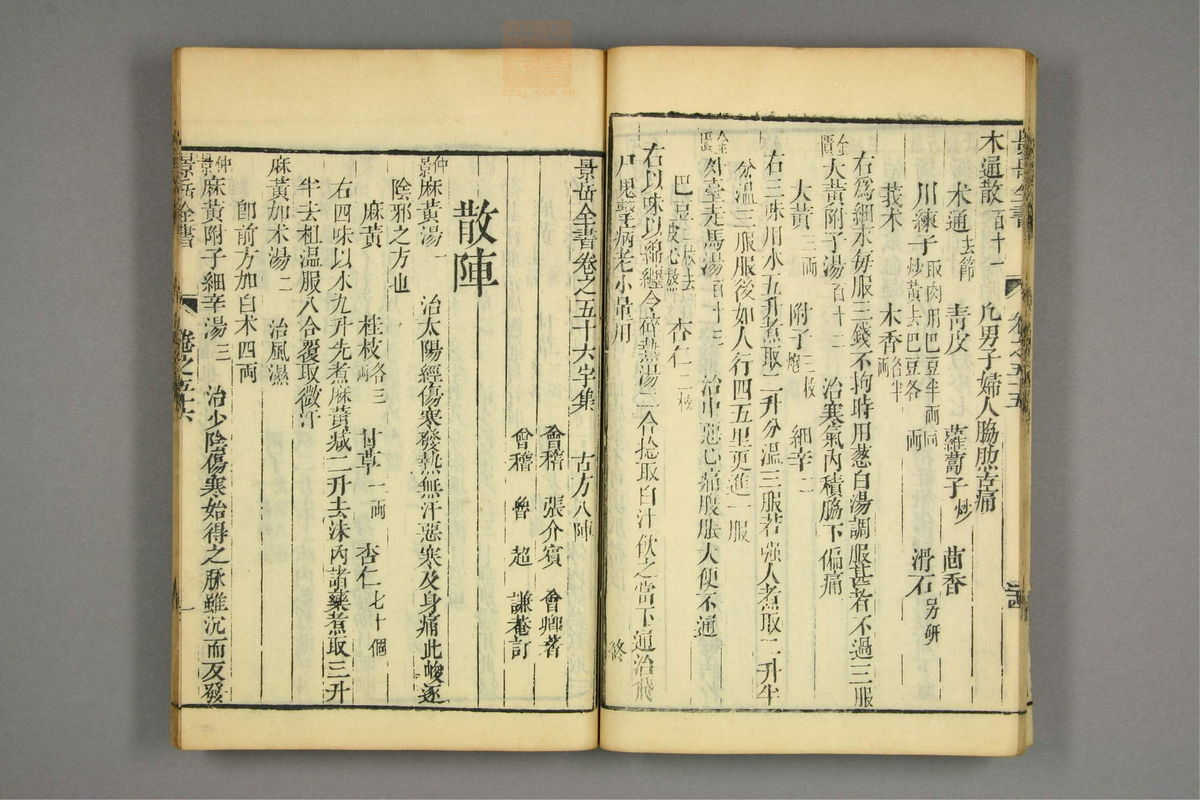 木通散百十一 凡男子婦人脇肋苦痛
木通去節 青皮 蘿蔔子炒 茴香
川楝子取肉用巴豆半兩同炒黃去巴豆各一兩 滑石另研
莪朮 木香各半兩
右爲細末每服三錢不拘時用葱白湯調服甚者不過三服
金匱大黃附子湯百十二 治寒氣內積脇下偏痛
大黃三兩 附子三枚炮 細辛二
右三味用水五升煮取二升分溫三服若强人煮取二升半
分溫三服服後如人行四五里更進一服
金匱外臺走馬湯百十三 治中惡心痛腹脹大便不通
巴豆二枚去皮心熬 杏仁二枚
右以味以綿纏令碎熱湯二合捻取白汁飲之當下通治飛
尸鬼擊病老小量用
終
景岳全書卷之五十六字集 古方八陣
會稽 張介賓 會卿著
會稽 魯超 謙菴訂
散陣
仲景麻黃湯一 治太陽經傷寒發熱無汗惡寒及身痛此峻逐
陰邪之方也
麻黃 桂枝各三兩 甘草一兩 杏仁七十個
右四味以水九升先煮麻黃減二升去沫內諸藥煮取三升
半去柤溫服八合覆取微汗
麻黃加朮湯二 治風濕
卽前方加白朮四兩
仲景麻黃附子細辛湯三 治少陰傷寒始得之脉雖沉而反發
景岳全書 卷之五十六 一